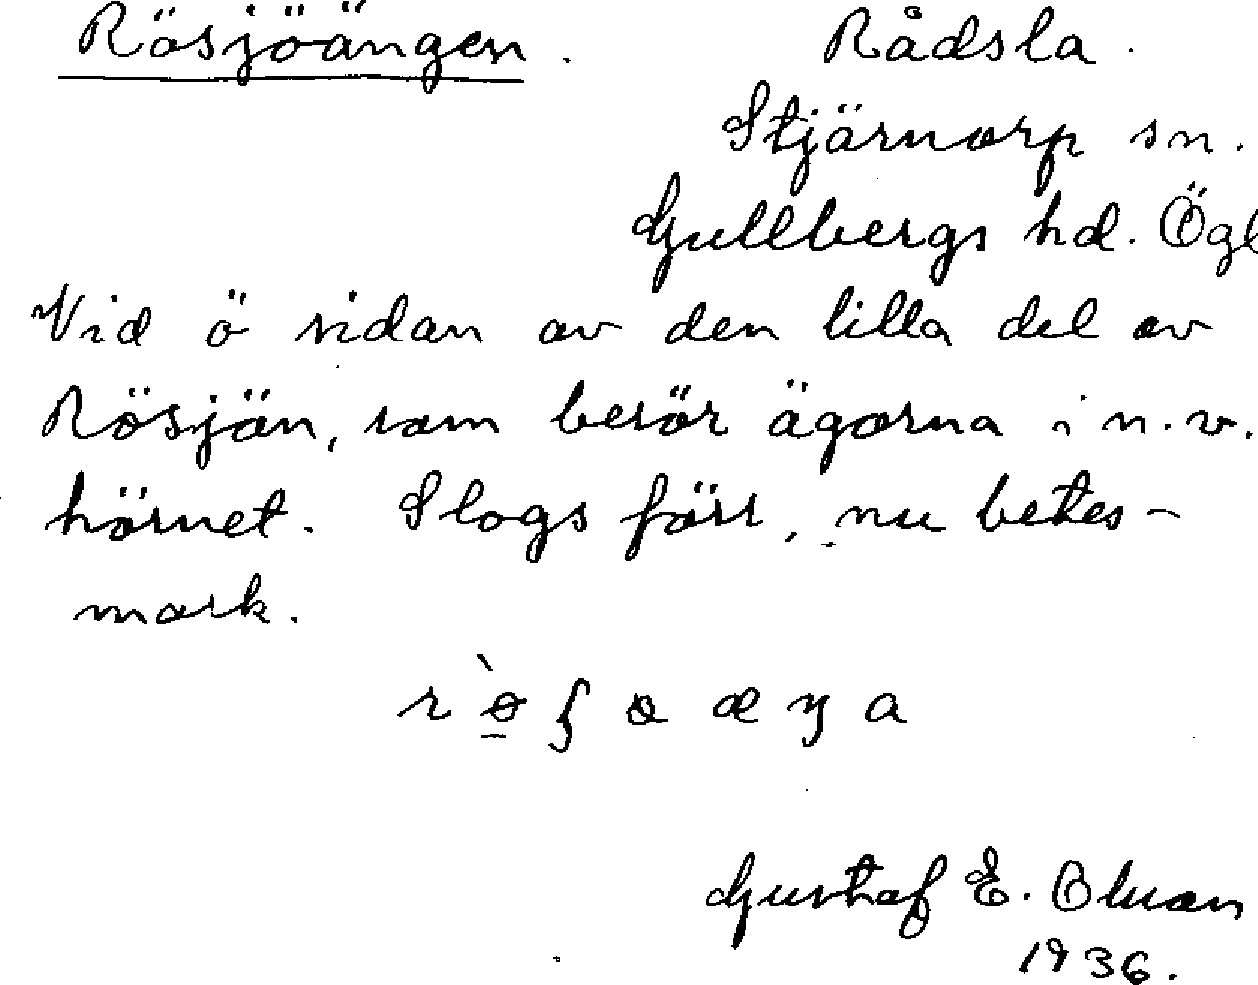 Rösjöängen. Rådsla.
Stjärnorp sn.
Gullbergs hd. Ögl
Vid ö sidan av den lilla del av
Rösjön, som berör ägorna i n.v.
hörnet. Slogs förr, nu betes-
mark.
Gustaf E. Olson
1936.